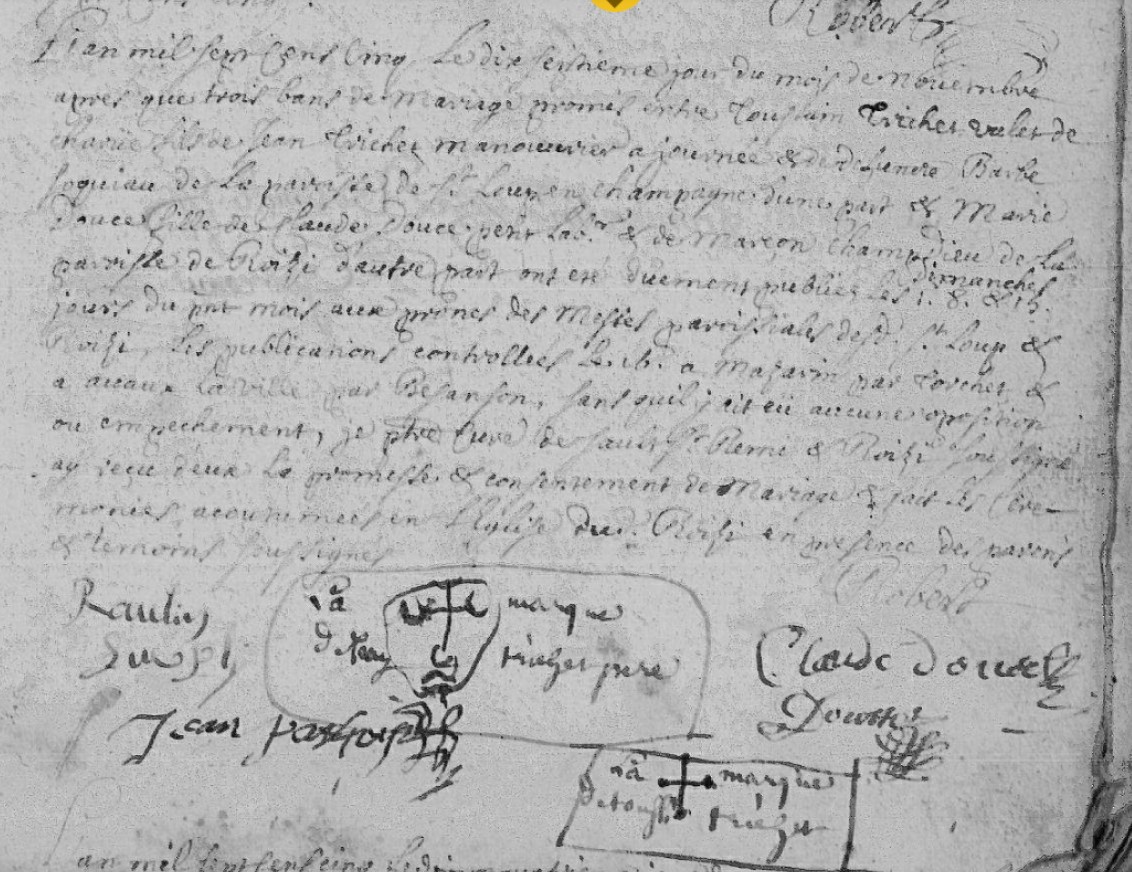 Robert
L'an mil sept cens cinq Le dix septieme jour du mois de Novembre
apres que trois bans de Mariage promis entre Toussain Trichet valet de
charüe fils de Jean Trichet manouvrier a journée & de defuncte Barbe
Soquiau de La paroisse de St Loup en Champagne d'une part & Marie
Douce fille de Claude Douce petit Labr & de Marson Champdieu de La
paroisse de Roizi d'autre part ont eté duement publiéz les dimanches
1. 8. & 15.
jours du pnt mois aux prônes des Messes paroissiales desd. St Loup &
Roizi, Les publications controllées Le 16. a Mazarin par Torchet &
a avaux La ville par Besanson, sans qu'il y ait eü aucune oposition
ou empechement, je ptre curé de Sault St Remi & Roizi soussigné
ay reçu d'eux La promesse & consentement de Mariage & fait Les Cere-
monies acoutumées en L'Eglise dud. Roizi en presence des parens
& temoins soussignés
Robert
Raulin
la marque
de Jean trichet pere
Claude Douce
Jean
Doucet
la marque
de touss trichet
an mil sept cens cinq Le